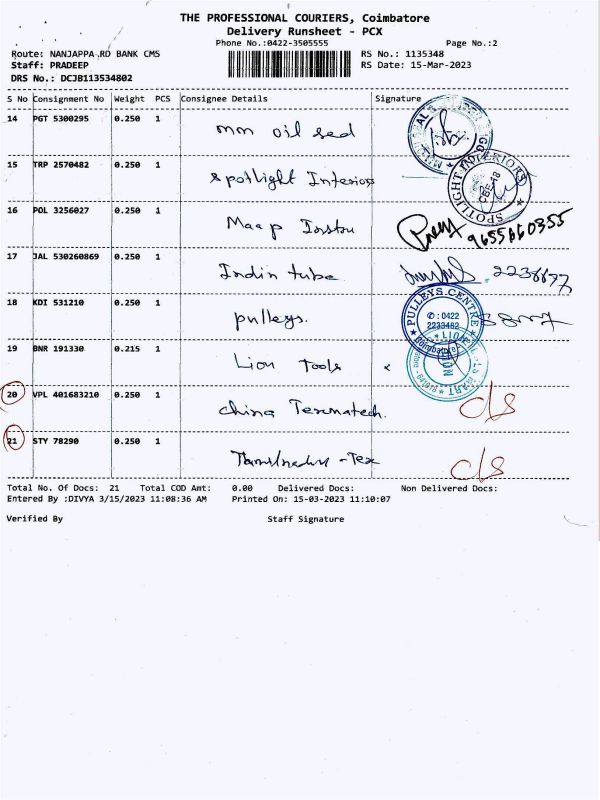 THE PROFESSIONAL COURIERS, Coimbatore
Delivery Runsheet - PCX
Phone No.:0422-3505555 Page No.:2
Route: NANJAPPA RD BANK CMS RS No.: 1135348
Staff: PRADEEP RS Date: 15-Mar-2023
DRS No.: DCJB113534802
S No Consignment No Weight PCS Consignee Details Signature
14 PGT 5300295 0.250 1
mm oil sed
15 TRP 2570482 0.250 1
Spotlight Interiors
SPOTLIGHT INTERIORS
CBE-18
16 POL 3256027 0.250 1
Maap Instru
9655660355
17 JAL 530260869 0.250 1
Indin tube
2236677
18 KDI 531210 0.250 1
pulleys.
PULLEYS CENTRE
✆: 0422
2233482
Coimbatore
19 BNR 191330 0.215 1
Lion Tools x
LION
MART
20 VPL 401683210 0.250 1
China Texmatech. c/s
21 STY 78290 0.250 1
Tamilnadu - Tex c/s
Total No. Of Docs: 21 Total COD Amt: 0.00 Delivered Docs: Non Delivered Docs:
Entered By :DIVYA 3/15/2023 11:08:36 AM Printed On: 15-03-2023 11:10:07
Verified By Staff Signature